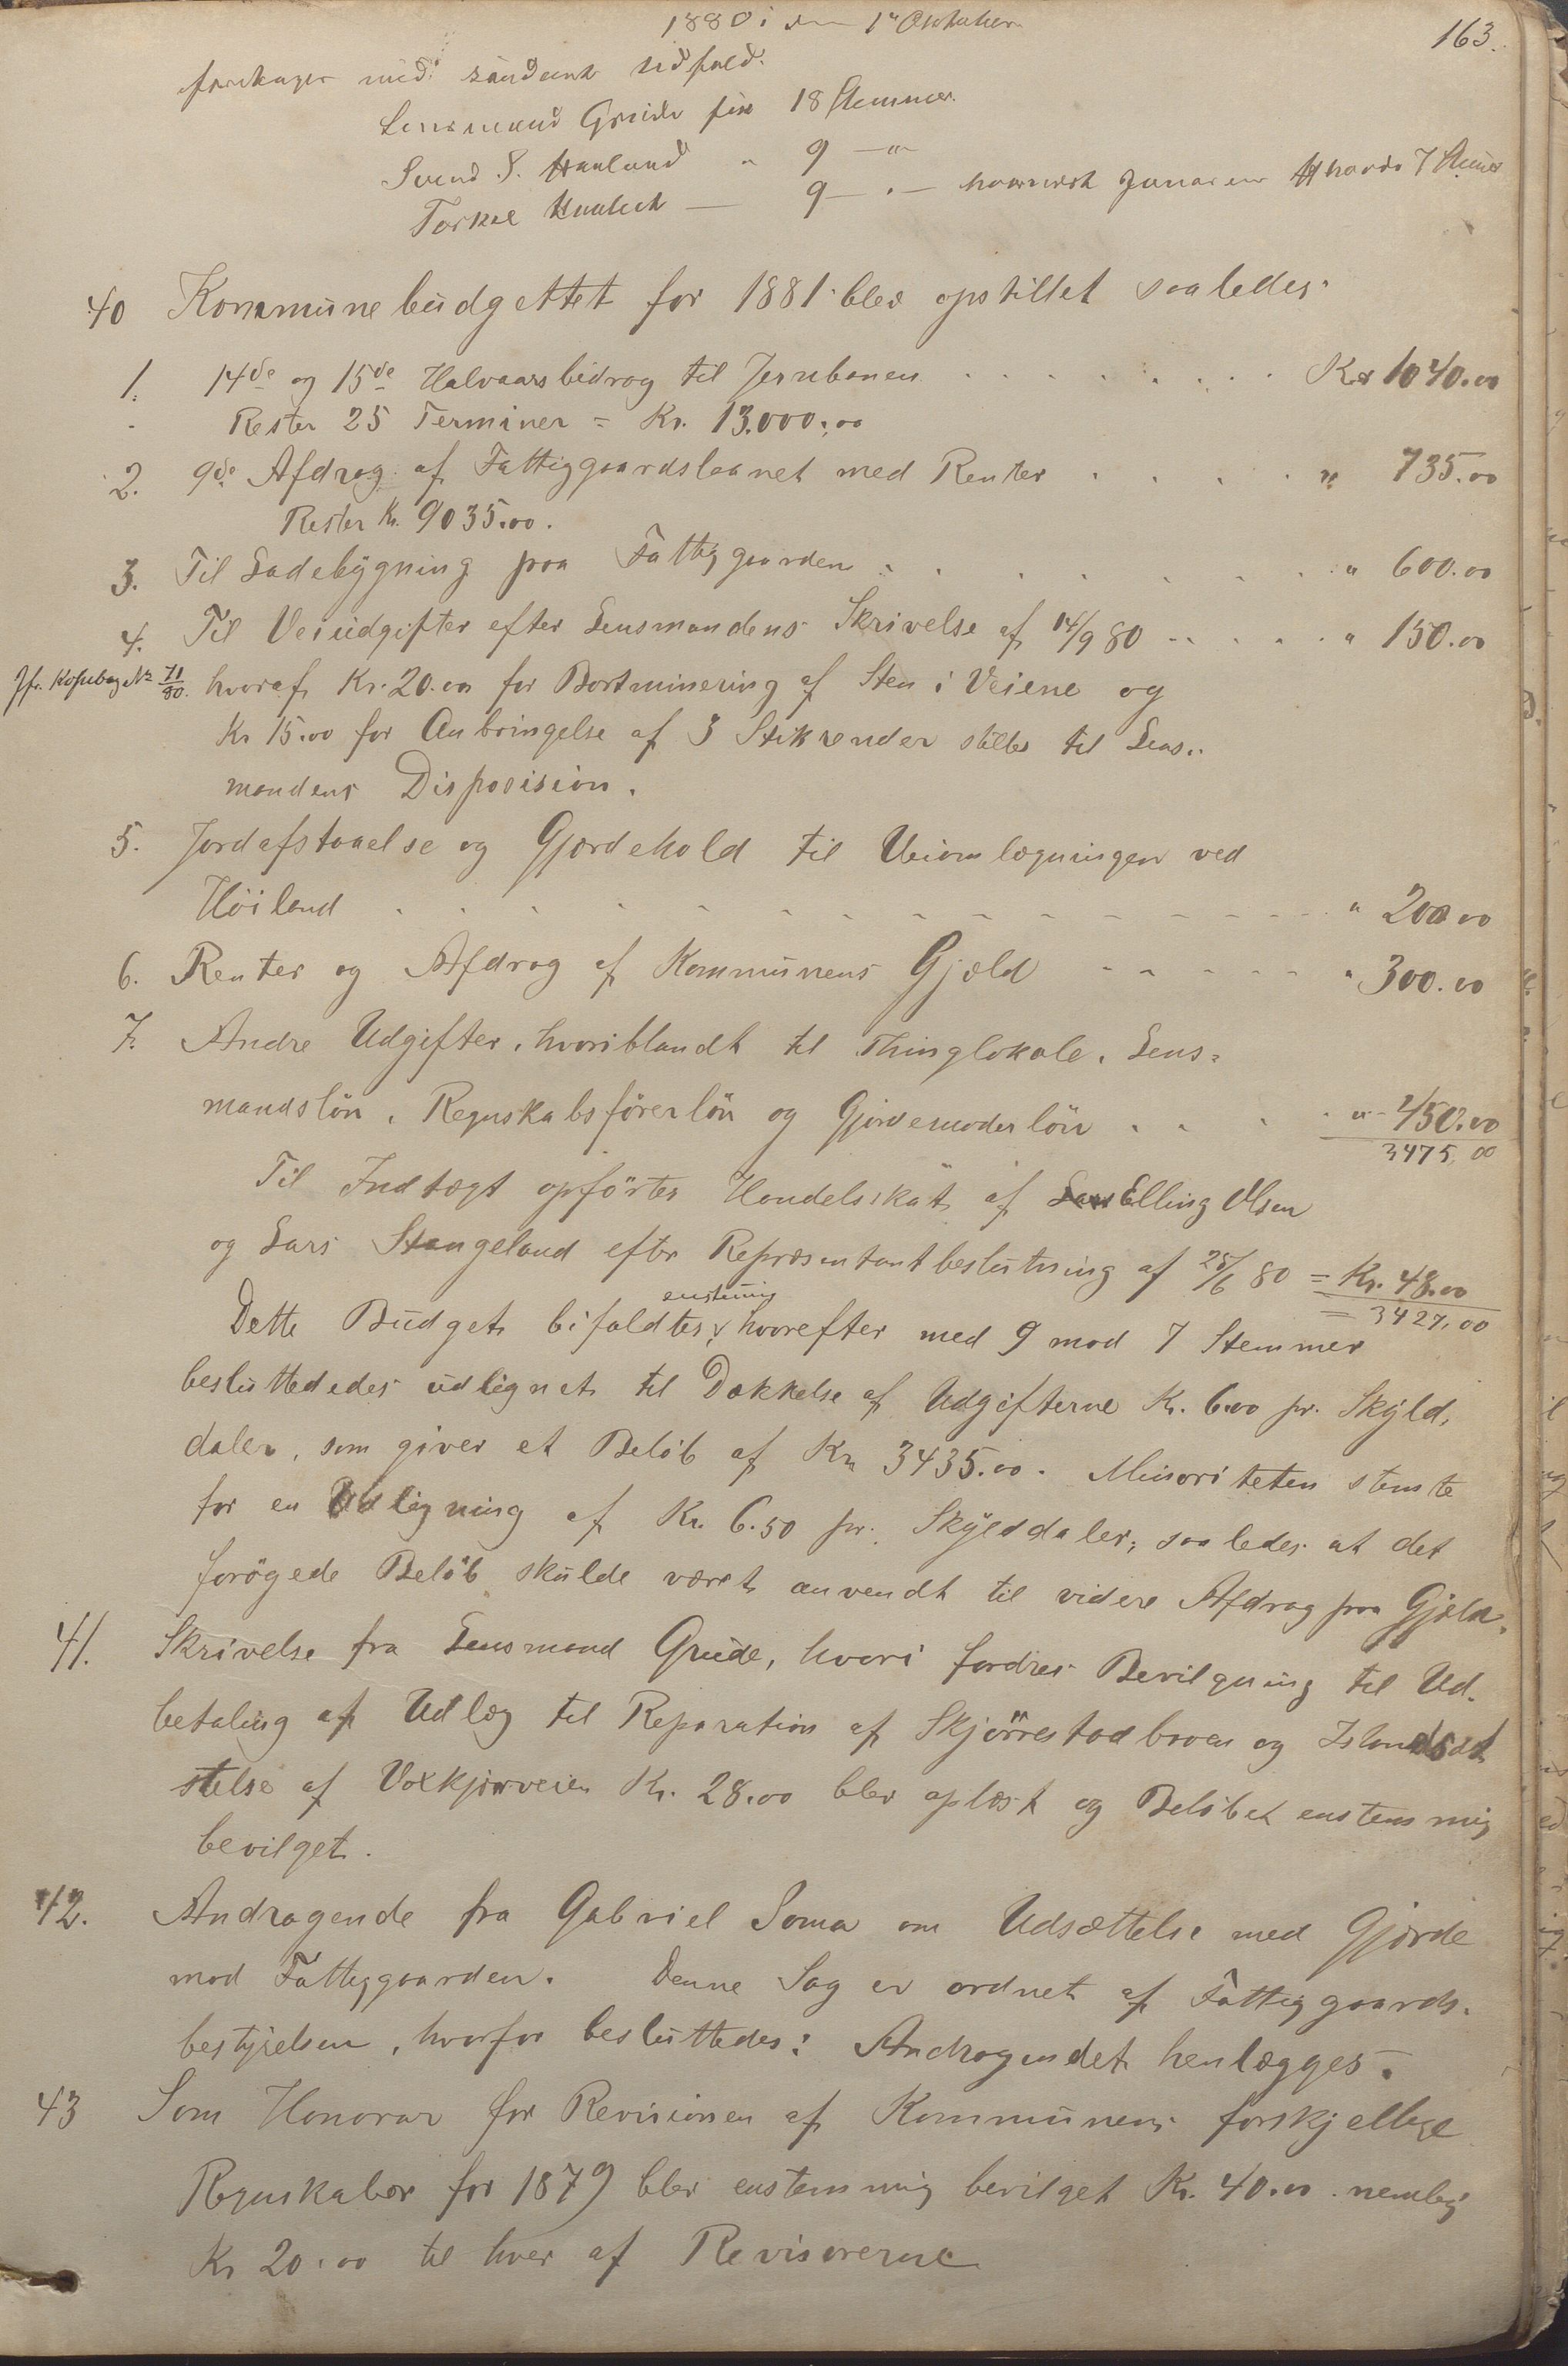 1880 i den 1ste Oktober
163.
foretages med saadant Udfald.
Lensmand Grude fik 18 Stemmer.
Svend S. Haaland " 9 —"—
Torkel — 9 —"— hvornæst 7 Stemmer
40 Kommunebudgettet for 1881 blev opstillet saaledes:
1. 14de og 15de Halvaarsbidrag til Jernbanen . . . . . . . . Kr 1040.00
Rester 25 Terminer = Kr. 13.000.00
2. 9de Afdrag af Fattiggaardslaanet med Renter . . . . " 735.00
Rester Kr. 9035.00.
3. Til Ladebygning paa Fattiggaarden . . . . . . . . " 600.00
4. Til Veiudgifter efter Lensmandens Skrivelse af 14/9 80 . . . . . " 150.00
Jfr. Kopibog No 71/80. hvoraf Kr. 20.00 for Bortminering af Sten i Veiene og
Kr 15.00 for Anbringelse af 3 Stikrender stilles til Lens-
mandens Disposision.
5. Jordafstaaelse og Gjærdehold til Veiomlægningen ved
Höiland . . . . . . . . . . . . . . " 200.00
6. Renter og Afdrag af Kommunens Gjæld - - - - - " 300.00
7. Andre Udgifter, hvoriblandt til Thinglokale, Lens-
mandslön, Regnskabsförerlön og Gjordemoderlön . . . . " 450.00
3475.00
Til Indtægt opförtes Handelsskat af Elling Olsen
og Lars Stangeland efter Repræsentantbeslutning af 25/6 80 = Kr. 48.00
= 3427.00
enstemig
Dette Budget bifaldtes, hvorefter med 9 mod 7 Stemmer
besluttededes udlignet til Dækkelse af Udgifterne Kr. 6.00 pr. Skyld-
daler, som giver et Beløb af Kr 3435.00. Minoriteten stemte
for en Udligning af Kr. 6.50 pr. Skylddaler, saaledes at det
forögede Belöb skulde været anvendt til videre Afdrag paa Gjæld.
41. Skrivelse fra Lensmand Grude, hvori fordres Bevilgning til Ud-
betaling af Udlæg til Reparation af Skjörrestadbroen og
stelse af Voxkjærveien Kr. 28.00 blev oplæst og Belöbet enstemmig
bevilget.
42. Andragende fra Gabriel Soma om Udsættelse med Gjærde
mod Fattiggaarden. Denne Sag er ordnet af Fattiggaards-
bestyrelsen, hvorfor besluttedes: Andragendet henlægges.
43 Som Honorar for Revisionen af Kommunens forskjellige
Regnskaber for 1879 blev enstemmig bevilget Kr. 40.00 nemlig
Kr 20.00 til hver af Revisorerne